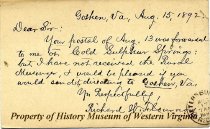 Goshen, Va, Aug. 15, 1892.
Dear Sir:
Your postal of Aug. 13 was forwarded
to me from Cold Sulphur Springs,
but I have not received the Rural
Messenger. I would be pleased if you
would send it direct to Goshen, Va.
Yrs Respectfully,
Richard
Property of History Museum of Western Virginia